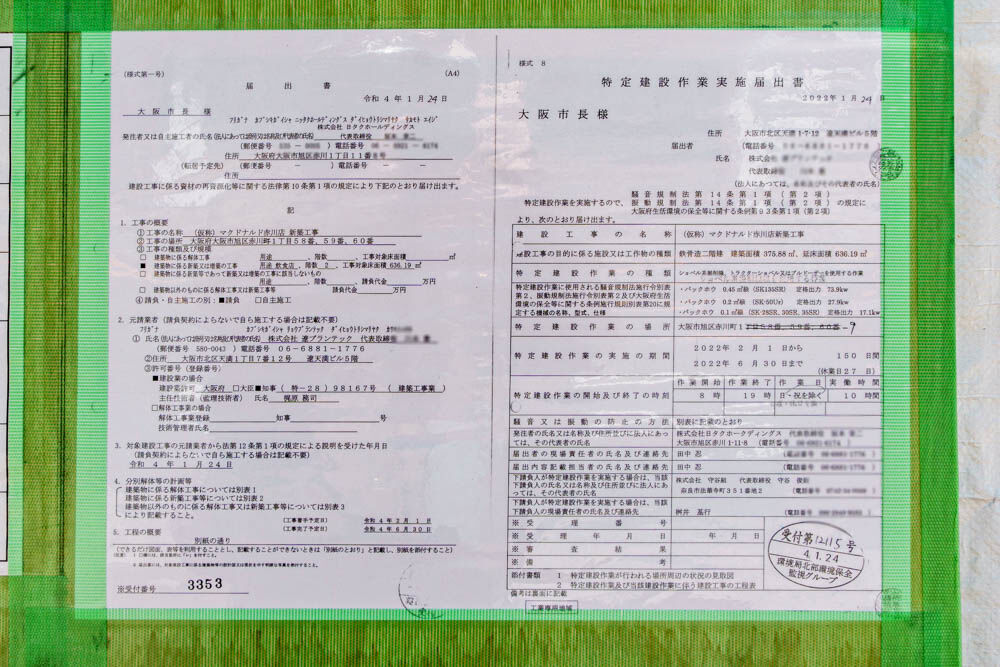 (様式第一号)
(A4)
届 出 書
令和 4 年 1 月 24 日
大 阪 市 長 様
フリガナ カブシキガイシャ ニッタクホールディングス ダイヒョウトリシマリヤク
株式会社 日タクホールディングス
発注者又は自主施工者の氏名(法人にあっては商号又は名称及び代表者の氏名) 代表取締役
(郵便番号 ) 電話番号
住所 大阪府大阪市旭区赤川1丁目11番
(転居予定先) (郵便番号 － ) 電話番号 － －
住所
建設工事に係る資材の再資源化等に関する法律第10条第1項の規定により下記のとおり届け出ます。
記
1. 工事の概要
①工事の名称 (仮称) マクドナルド赤川店 新築工事
②工事の場所 大阪府大阪市旭区赤川町1丁目58番、59番、60番
③工事の種類及び規模
□ 建築物に係る解体工事 用途 、階数 、工事対象床面積 ㎡
■ 建築物に係る新築又は増築の工事 用途 飲食店 、階数 2 、工事対象床面積 636.19 ㎡
□ 建築物に係る新築工事等であって新築又は増築の工事に該当しないもの
用途 、階数 、請負代金 万円
□ 建築物以外のものに係る解体工事又は新築工事等 請負代金 万円
④請負・自主施工の別：■請負 □自主施工
2. 元請業者 (請負契約によらないで自ら施工する場合は記載不要)
フリガナ カブシキガイシャ リョウプランテック ダイヒョウトリシマリヤク
① 氏名(法人にあっては商号又は名称及び代表者の氏名) 株式会社 遼プランテック 代表取締役
(郵便番号 580-0043) 電話番号 06-6881-1776
②住所 大阪市北区天満1丁目7番12号 遼天満ビル5階
③許可番号 (登録番号)
■建設業の場合
建設業許可 大阪府 □大臣■知事 (特－28) 98167号 (建築工事業)
主任技術者 (監理技術者) 氏名 梶原 務司
□解体工事業の場合
解体工事業登録 知事 号
技術管理者氏名
3. 対象建設工事の元請業者から法第12条第1項の規定による説明を受けた年月日
(請負契約によらないで自ら施工する場合は記載不要)
令和 4 年 1 月 24 日
4. 分別解体等の計画等
建築物に係る解体工事については別表1
建築物に係る新築工事等については別表2
建築物以外のものに係る解体工事又は新築工事等については別表3
により記載すること。
(工事着手予定日) 令和 4 年 2 月 1 日
(工事完了予定日) 令和 4 年 6 月 30 日
5. 工程の概要
別紙の通り
(できるだけ図面、表等を利用することとし、記載することができないときは「別紙のとおり」と記載し、別紙を添付すること)
※受付番号 3353
様式 8
特 定 建 設 作 業 実 施 届 出 書
2022年 1月 24日
大 阪 市 長 様
住所 大阪市北区天満1-7-12 遼天満ビル5階
届出者 (電話番号 )
氏名 株式会社 遼プランテック
代表取締役
(法人にあっては、名称及びその代表者の氏名)
騒 音 規 制 法 第 14 条 第 1 項 (第 2 項)
特定建設作業を実施するので、 振 動 規 制 法 第 14 条 第 1 項 (第 2 項) の規定に
大阪府生活環境の保全等に関する条例第93条第1項 (第2項)
より、次のとおり届け出ます。
建 設 工 事 の 名 称 (仮称) マクドナルド赤川店新築工事
建設工事の目的に係る施設又は工作物の種類 鉄骨造二階建 建築面積 375.88㎡、延床面積 636.19㎡
特 定 建 設 作 業 の 種 類 ショベル系掘削機、トラクターショベル又はブルドーザーを使用する作業
特定建設作業に使用される騒音規制法施行令別表第2、振動規制法施行令別表第2及び大阪府生活環境の保全等に関する条例施行規則別表第20に規定する機械の名称、型式、仕様
・バックホウ 0.45㎥級 (SK135SR) 定格出力 73.9kw
・バックホウ 0.2㎥級 (SK-50Ur) 定格出力 27.9kw
・バックホウ 0.1㎥級 (SK-28SR, 30SR, 35SR) 定格出力 17.1kw
特 定 建 設 作 業 の 場 所 大阪市旭区赤川町1 2番58番、59番、60番 -9
特定建設作業の実施の期間 2022年 2月 1日から
2022年 6月 30日まで
150日間
(休業日27日)
特定建設作業の開始及び終了の時刻
作業開始 作業終了 作業日 実働時間
8 時 19 時 日・祝を除く 10 時間
騒 音 又 は 振 動 の 防 止 の 方 法 別表に記載のとおり
発注者の氏名又は名称及び住所並びに法人にあっては、その代表者の氏名 株式会社日タクホールディングス 代表取締役
大阪市旭区赤川1-11-8 (電話番号 )
届出者の現場責任者の氏名及び連絡先 田中 忍 (電話番号 )
届出内容記載担当者の氏名及び連絡先 田中 忍 (電話番号 )
下請負人が特定建設作業を実施する場合は、当該下請負人の氏名又は名称及び住所並びに法人にあっては、その代表者の氏名 株式会社 守谷組 代表取締役 守谷 俊樹
奈良市法華寺町351番地2 (電話番号 )
下請負人が特定建設作業を実施する場合は、当該下請負人の現場責任者の氏名及び連絡先 桝井 基行 (電話番号 )
※ 受 理 番 号 号
※ 受 理 年 月 日 年 月 日
※ 審 査 結 果
※ 備 考
添付書類 1 特定建設作業が行われる場所周辺の状況の見取図
2 特定建設作業及び当該建設作業に伴う建設工事の工程表
備考は裏面に記載
工業専用地域
受付第12115号
4.1.24
環境局北部環境保全
監視グループ